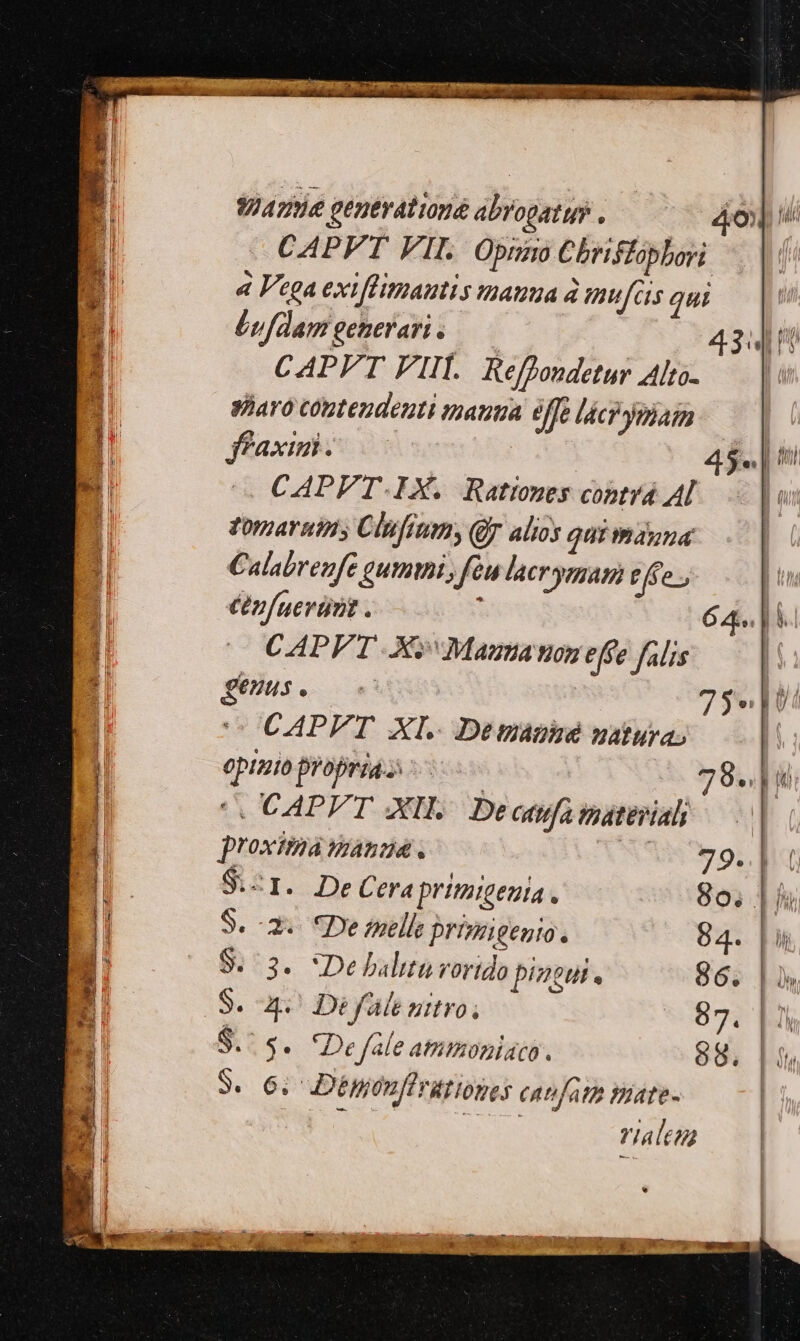 mannæ generatione abrogatur. 40.
CAPVT VII. Opinio Christophori
à Vega existimantis manna à muscis qui
busdam generari. 43.
CAPVT VIII. Respondetur Alto-
maro contendenti manna esse lacrymam
fraxini. 45.
CAPVT IX. Rationes contrà Al
tomarum, Clusium, & alios qui manna
Calabrense gummi, seu lacrymam esse
censuerunt. 64.
CAPVT X. Manna non esse salis
genus. 75.
CAPVT XI. De mannæ natura
opinio propria. 78.
CAPVT XII. De causa materiali
proxima mannæ. 79.
§. 1. De Cera primigenia. 80.
§. 2. De melle primigenio. 84.
§. 3. De halitu rorido pingui. 86.
§. 4. De sale nitro. 87.
§. 5. De sale ammoniaco. 88.
§. 6. Demonstrationes causam mate-
rialem